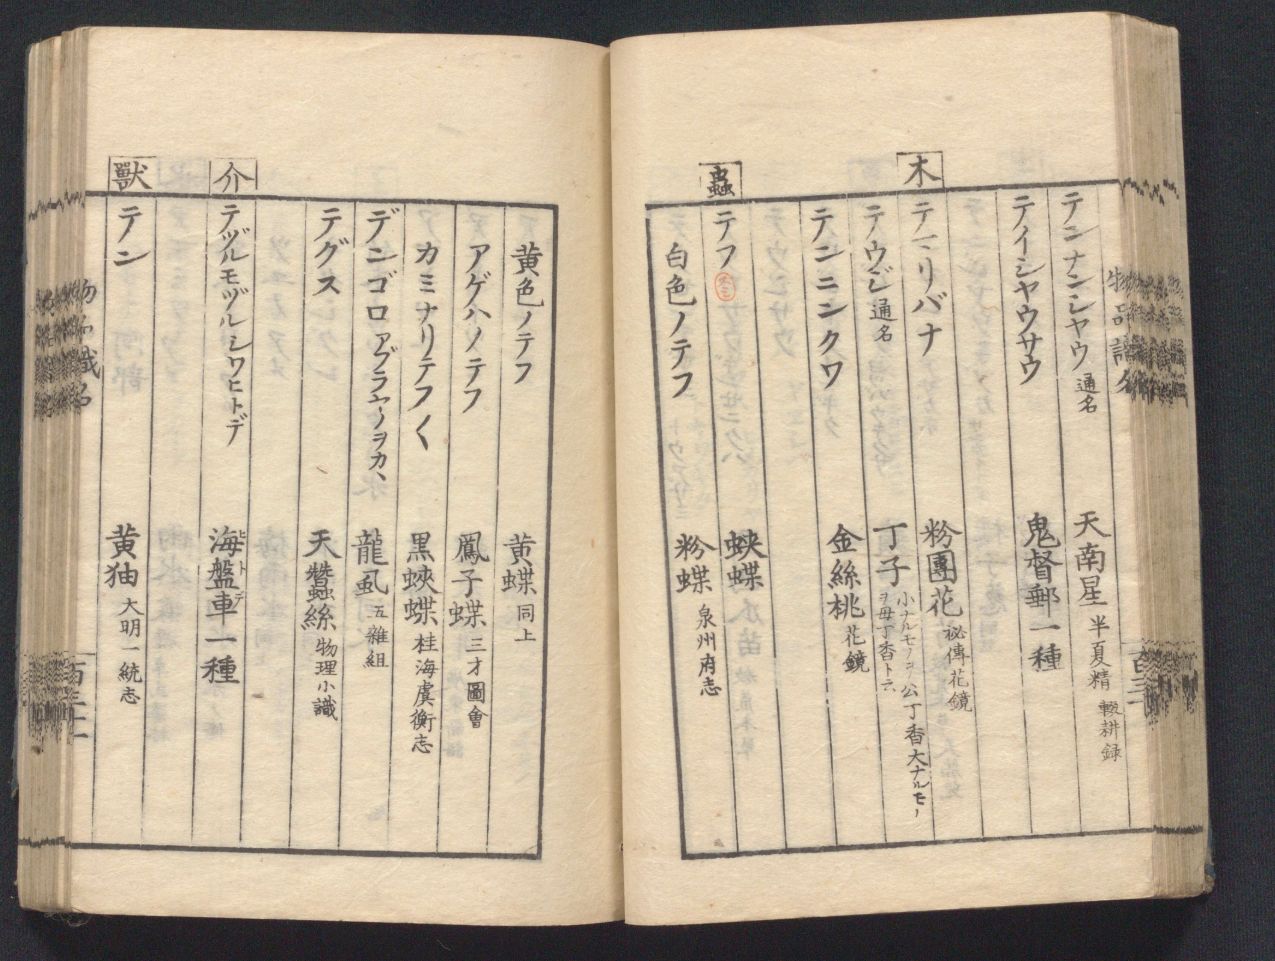 物品識名
テンナンシヤウ 通名 天南星 半夏精 輟耕録
テイシヤウサウ 鬼督郵一種
木
テマリバナ 粉團花 秘傳花鏡
テウジ 通名 丁子 小ナルモノヲ公丁香大ナルモノヲ母丁香ト云
テンニンクワ 金絲桃 花鏡
蟲
テフ 蛺蝶
白色ノテフ 粉蝶 泉州府志
黄色ノテフ 黄蝶 同上
アゲハノテフ 鳳子蝶 三才圖會
カミナリテフ〱 黒蛺蝶 桂海虞衡志
デンゴロ アブラヤノヲカヽ 龍虱 五雜組
テグス 天蠶絲 物理小識
介
テヅルモヅル シワヒトデ 海盤車一種 ヒトデ
獸
テン 黄㹨 大明一統志
物品識名